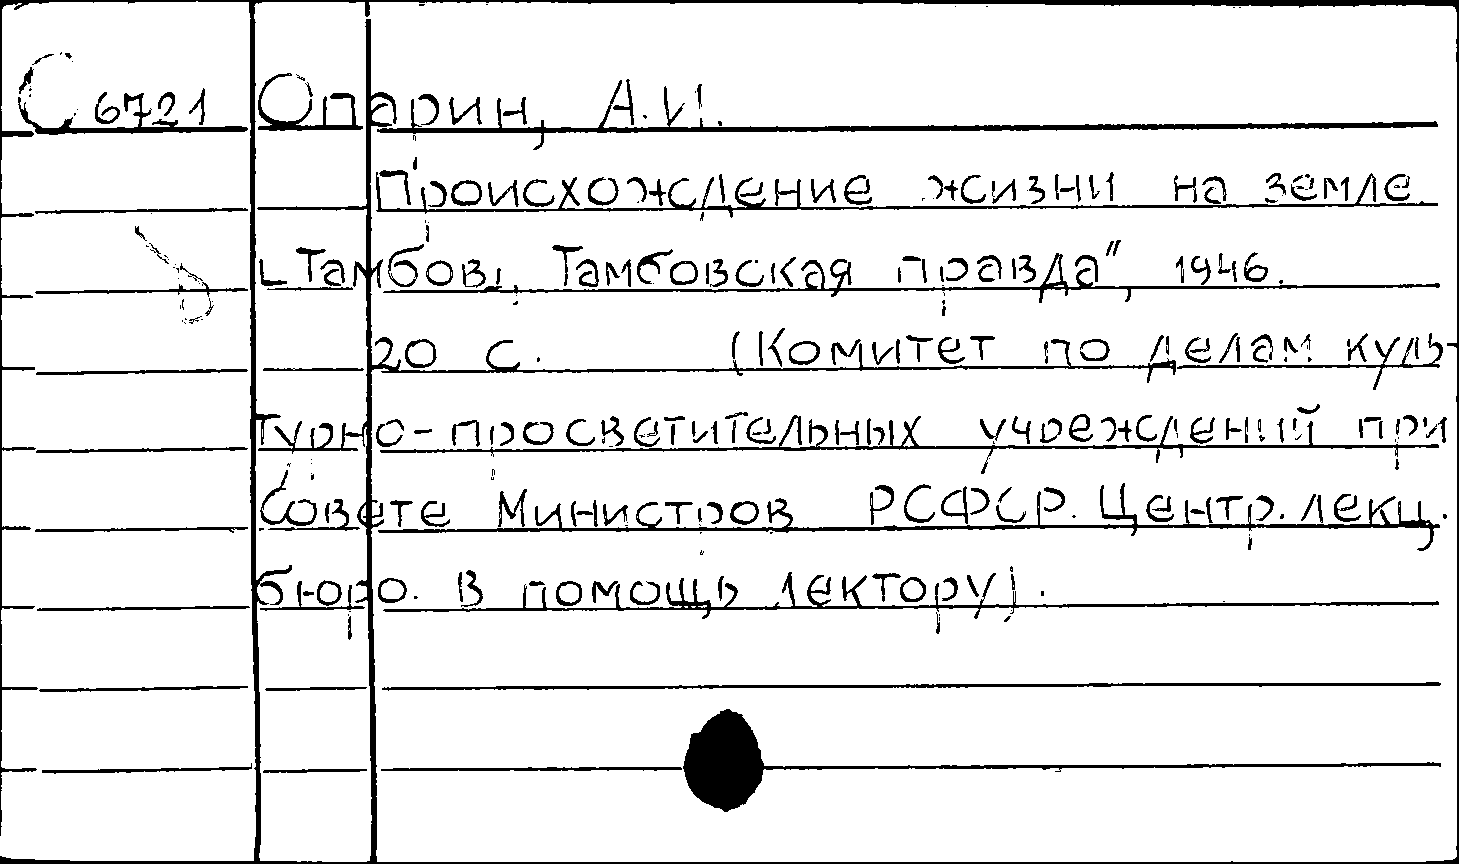 С 6721 Опарин, А.И.
Происхождение жизни на земле.
[Тамбов], Тамбовская правда", 1946.
20 с. (Комитет по делам куль-
турно-просветительных учреждений при
Совете Министров РСФСР. Центр. лекц.
бюро. В помощь лектору).